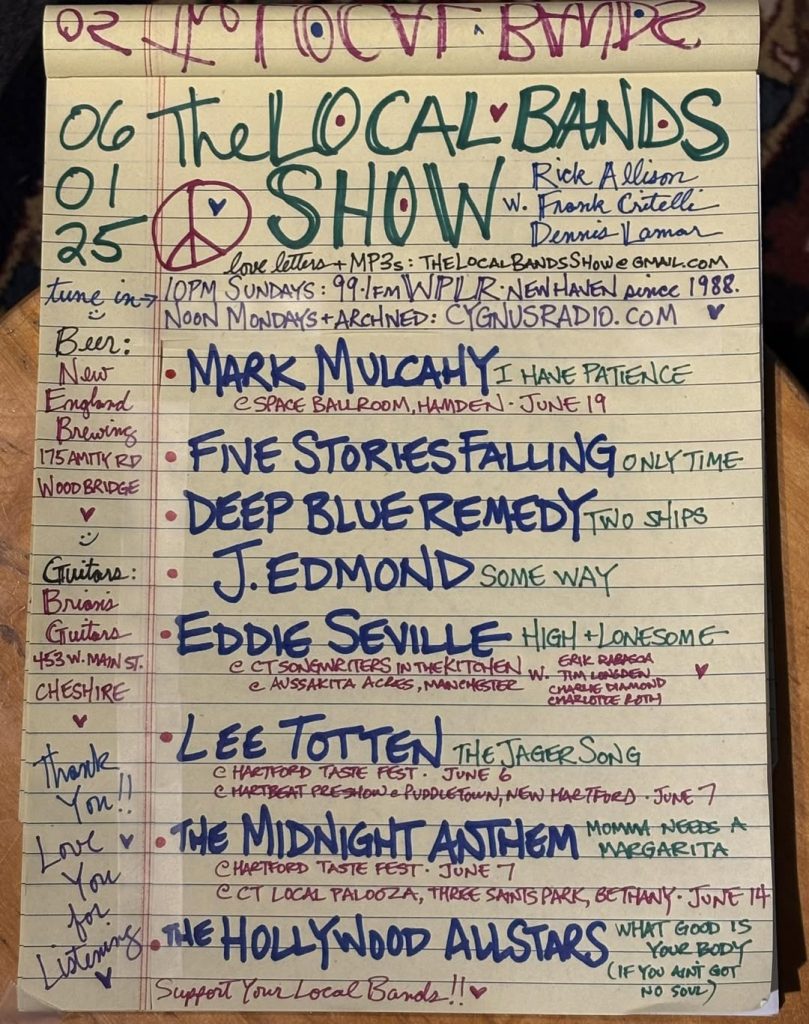 06 The LOCAL BANDS
01 SHOW w. Rick Allison
Frank Critelli
25 Dennis Lamar
love letters + MP3s: THELOCALBANDSSHOW@GMAIL.COM
tune in → 10PM SUNDAYS: 99.1FM WPLR · NEW HAVEN since 1988.
NOON MONDAYS + ARCHIVED: CYGNUSRADIO.COM
Beer:
New
England
Brewing
175 AMITY RD
WOODBRIDGE
Guitars:
Brian's
Guitars
453 W. MAIN ST.
CHESHIRE
Thank
You!!
Love
You
for
Listening
• MARK MULCAHY I HAVE PATIENCE
@ SPACE BALLROOM, HAMDEN · JUNE 19
• FIVE STORIES FALLING ONLY TIME
• DEEP BLUE REMEDY TWO SHIPS
• J. EDMOND SOME WAY
• EDDIE SEVILLE HIGH + LONESOME
@ CT SONGWRITERS IN THE KITCHEN w. ERIK RABASCA
@ AUSSAKITA ACRES, MANCHESTER TIM LONGDEN
CHARLIE DIAMOND
CHARLOTTE ROTH
• LEE TOTTEN THE JAGER SONG
@ HARTFORD TASTE FEST · JUNE 6
@ HARTBEAT PRESHOW @ PUDDLETOWN, NEW HARTFORD · JUNE 7
• THE MIDNIGHT ANTHEM MOMMA NEEDS A
MARGARITA
@ HARTFORD TASTE FEST · JUNE 7
@ CT LOCAL PALOOZA, THREE SAINTS PARK, BETHANY · JUNE 14
• THE HOLLYWOOD ALLSTARS WHAT GOOD IS
YOUR BODY
(IF YOU AIN'T GOT
NO SOUL)
Support Your Local Bands!!